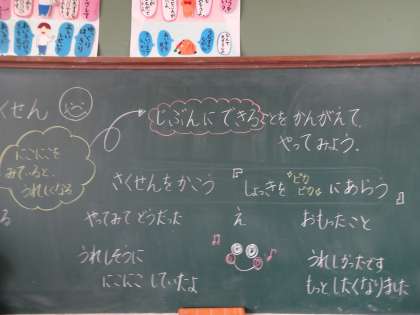 くせん
じぶんにできることをかんがえて、
やってみよう。
にこにこを
みていると、
うれしくなる
さくせんをかこう
『しょっきをピカピカにあらう』
る
やってみてどうだった
え
おもったこと
うれしそうに
にこにこしていたよ
うれしかったです
もっとしたくなりました